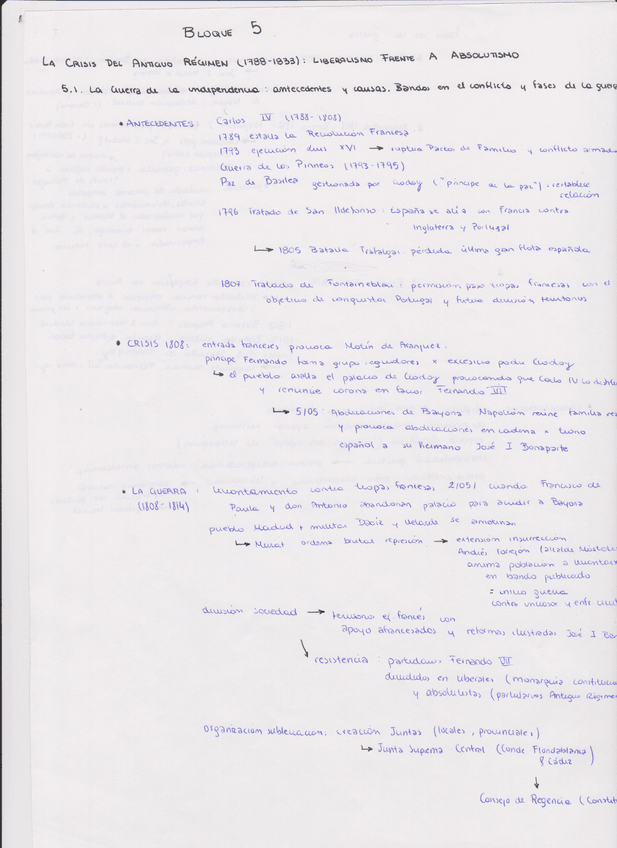 BLOQUE 5
LA CRISIS DEL ANTIGUO RÉGIMEN (1788-1833): LIBERALISMO FRENTE A ABSOLUTISMO
5.1. La Guerra de la independencia: antecedentes y causas. Bandos en el conflicto y fases de la guer
• ANTECEDENTES: Carlos IV (1788-1808)
1789 estalla la Revolución Francesa
1793 ejecución Luis XVI → ruptura Pactos de Familia y conflicto armad
Guerra de los Pirineos (1793-1795)
Paz de Basilea gestionada por Godoy ("príncipe de la paz"): restablece
relación
1796 Tratado de San Ildefonso: España se alía con Francia contra
Inglaterra y Portugal
↳ 1805 Batalla Trafalgar: pérdida última gran flota española
1807 Tratado de Fontainebleau: permisión paso tropas francesas con el
objetivo de conquistar Portugal y futura división territorios
• CRISIS 1808: entrada franceses provoca Motín de Aranjuez:
príncipe Fernando forma grupo seguidores x excesivo poder Godoy
↳ el pueblo asalta el palacio de Godoy provocando que Carlos IV lo
y renuncie corona en favor Fernando VII
↳ 5/05: Abdicaciones de Bayona Napoleón reúne familia re
y provoca abdicaciones en cadena x trono
español a su hermano José I Bonaparte
• LA GUERRA: levantamiento contra tropas francesas, 2/05/ cuando Francisco de
(1808-1814) Paula y don Antonio abandonan palacio para acudir a Bayona
pueblo Madrid + militares Daoiz y Velarde se amotinan
↳ Murat ordena brutal represión → extensión insurrección
Andrés Torrejón (alcalde Móstole
anima población a levantars
en bando publicado
= inicio guerra
contra invasor y entre
división sociedad → territorio ej. francés con
apoyo afrancesados y reformas ilustradas José I Bon
↘ resistencia: partidarios Fernando VII
divididos en liberales (monarquía constituc
y absolutistas (partidarios Antiguo Régime
organización sublevación: creación Juntas (locales, provinciales)
↳ Junta Suprema Central (Conde Floridablanca)
Cádiz
↓
Consejo de Regencia (Constit